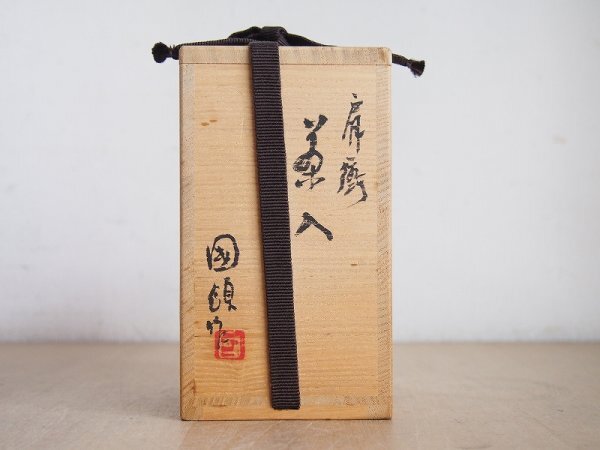 肩衝
茶入
國領作